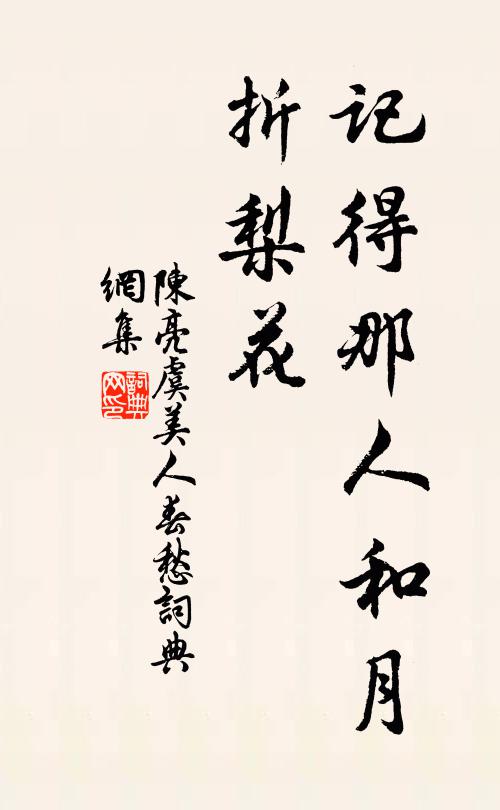 記得那人和月
折梨花
陳亮虞美人春愁詞典
網集
詞典
网印